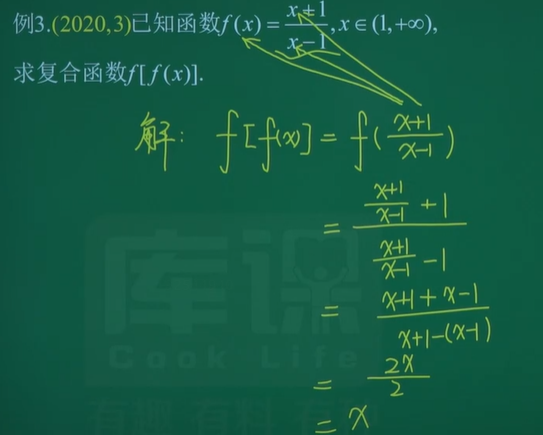 例3.(2020,3)已知函数f(x)=\frac{x+1}{x-1},x∈(1,+∞),
求复合函数f[f(x)].
解: f[f(x)] = f(\frac{x+1}{x-1})
= \frac{\frac{x+1}{x-1}+1}{\frac{x+1}{x-1}-1}
= \frac{x+1+x-1}{x+1-(x-1)}
= \frac{2x}{2}
= x
库课
Cook Life
有趣 有料 有